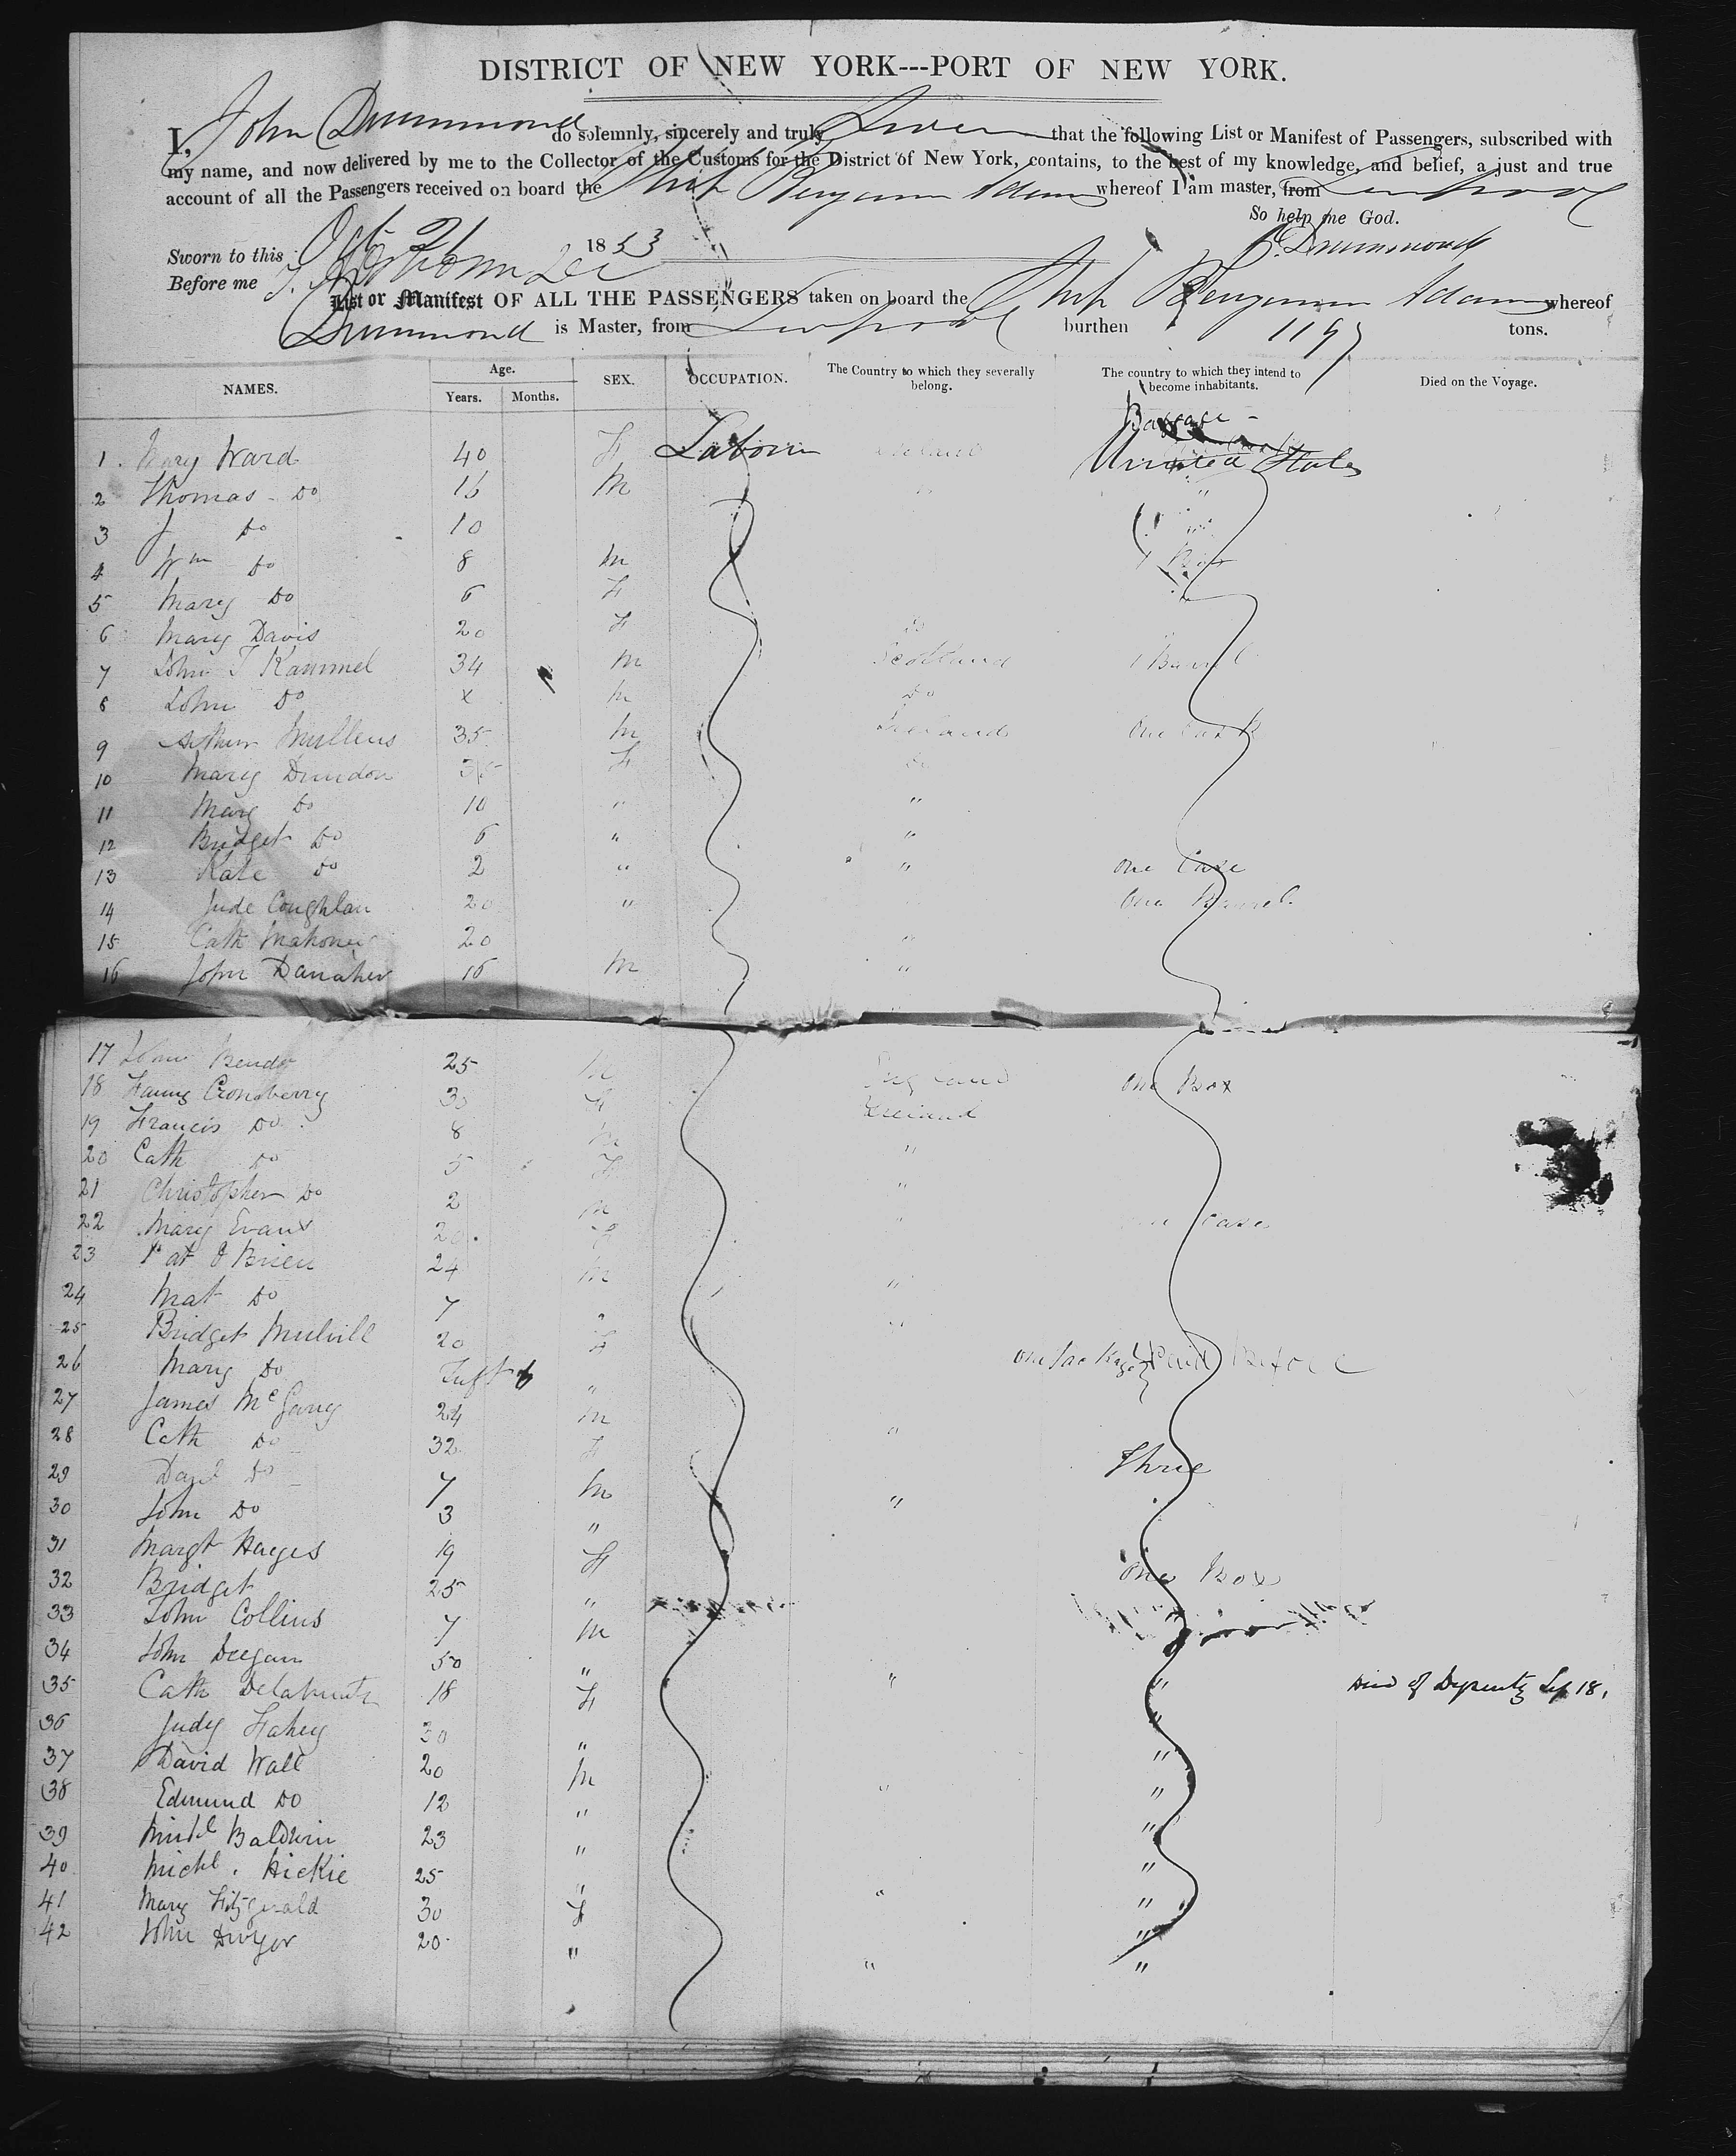 DISTRICT OF NEW YORK---PORT OF NEW YORK.
I, John Drummond do solemnly, sincerely and truly Swear that the following List or Manifest of Passengers, subscribed with
my name, and now delivered by me to the Collector of the Customs for the District of New York, contains, to the best of my knowledge, and belief, a just and true
account of all the Passengers received on board the Ship Benjamin Adams whereof I am master, from Liverpool
So help me God.
Sworn to this Oct 21 1853 J. Drummond
Before me
List or Manifest OF ALL THE PASSENGERS taken on board the Ship Benjamin Adams whereof
Drummond is Master, from Liverpool burthen 1197 tons.
NAMES. Age. Years. Months. SEX. OCCUPATION. The Country to which they severally belong. The country to which they intend to become inhabitants. Died on the Voyage.
Baggage
1 Mary Ward 40 F Labourer Ireland United States
2 Thomas Do 16 M "
3 J Do 10
4 Wm Do 8 M 1 Box
5 Mary Do 6 F
6 Mary Davis 20 F Do
7 John T Kammel 34 M Scotland 1 Barrel
8 John Do x M Do
9 Arthur Mullens 35 M Ireland One Cask
10 Mary Dundon 35 F Do
11 Mary Do 10 " "
12 Bridget Do 6 " "
13 Kate Do 2 " " one Case
14 Jude Coughlan 20 " One Barrel
15 Cath Mahoney 20 "
16 John Danaher 16 M "
17 John 25 M England one Box
18 Fanny Cronsberry 30 F Ireland
19 Francis Do 8 M
20 Cath Do 5 F "
21 Christopher Do 2 M "
22 Mary Evans 20 F " Case
23 Pat O Brien 24 M
24 Mat Do 7 "
25 Bridget Mulvill 20 F "
26 Mary Do Inft " one Package Paid Before
27 James McGarry 24 M
28 Cath Do 32 F "
29 Danl Do 7 M Three
30 John Do 3 " "
31 Margt Hayes 19 F
32 Bridget 25 " One Box
33 John Collins 7 M "
34 John Deegan 50 "
35 Cath Delahunty 18 F " " Died of Dysentry Sep 18,
36 Judy Fahey 30 " "
37 David Wall 20 M "
38 Edmund Do 12 " " "
39 Michl Baldwin 23 " "
40 Michl. Hickie 25 " "
41 Mary Fitzgerald 30 F " "
42 John Dwyer 20 " " "